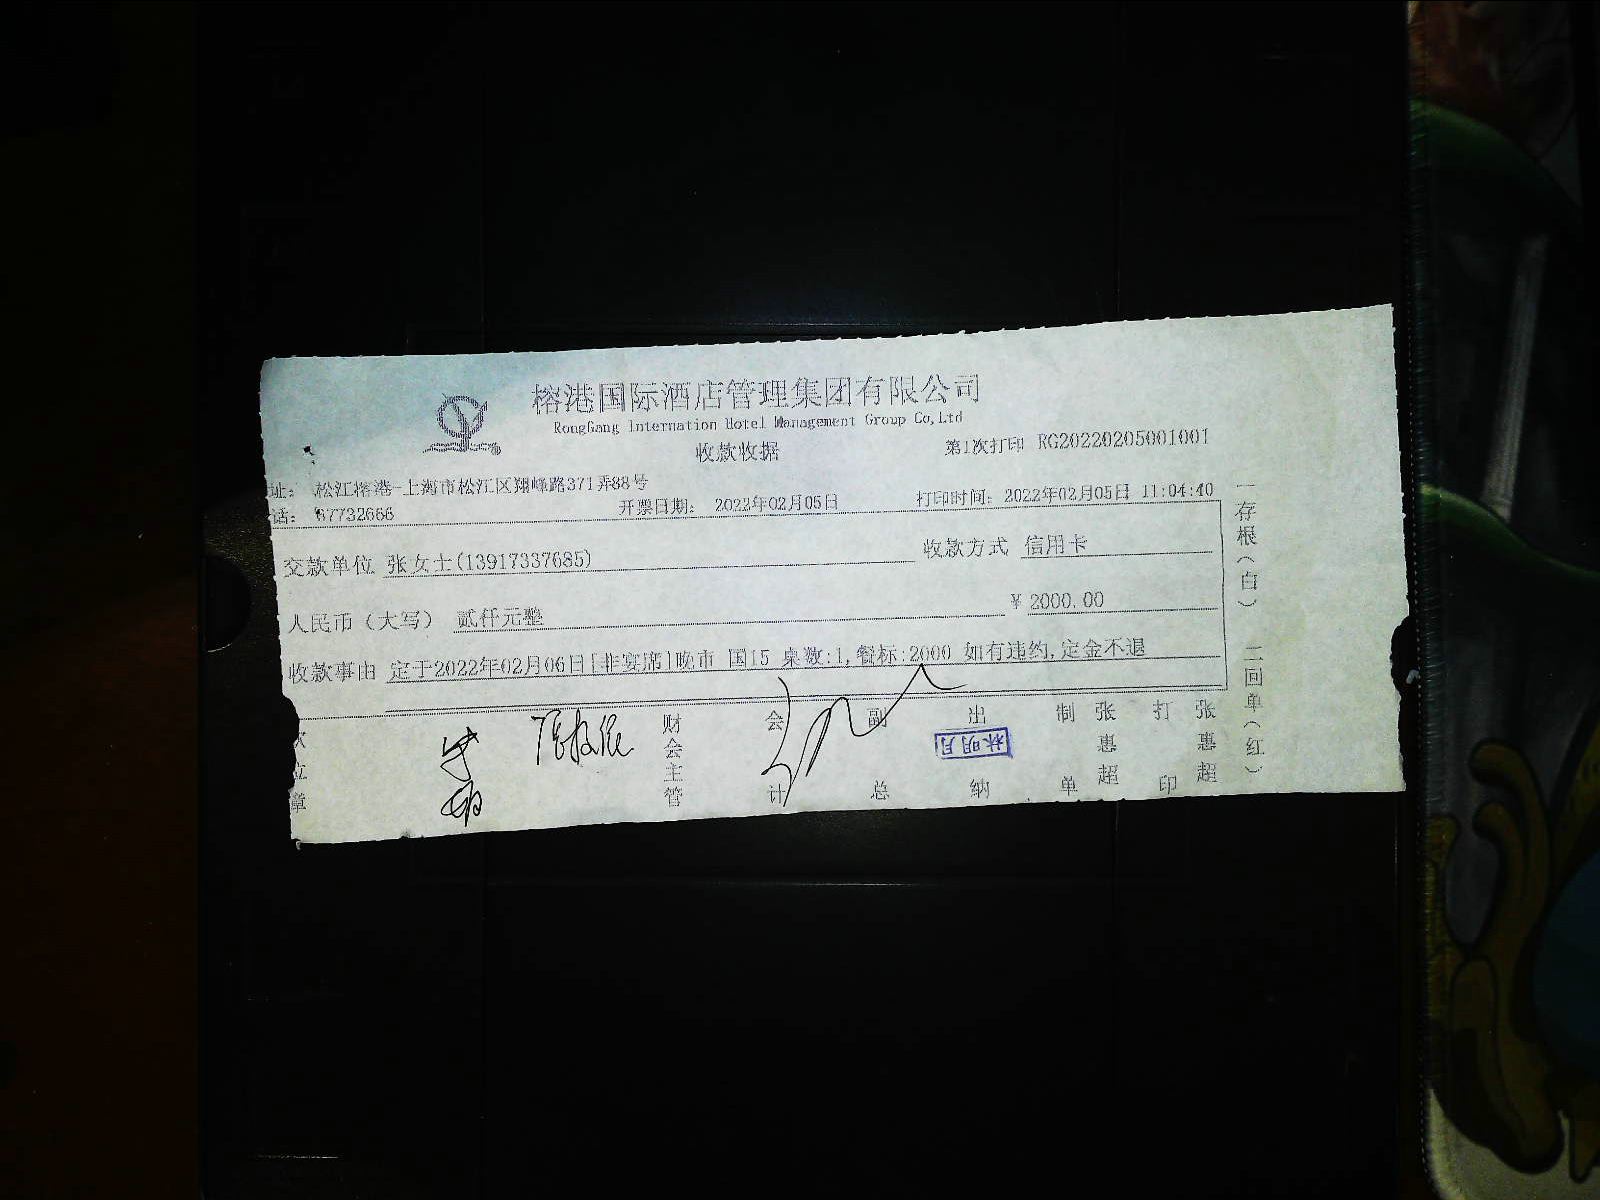 榕港国际酒店管理集团有限公司
RongGang Internation Hotel Management Group Co,Ltd
收款收据
第1次打印 RG20220205001001
址: 松江榕港-上海市松江区翔峰路371弄88号
话: 67732666 开票日期: 2022年02月05日 打印时间: 2022年02月05日 11:04:40
交款单位 张女士(13917337685) 收款方式 信用卡
人民币（大写） 贰仟元整 ¥ 2000.00
收款事由 定于2022年02月06日[非宴席]晚市 国15 桌数:1,餐标:2000 如有违约,定金不退
章
财会主管
会计
副总
出纳
林明月
制单
张惠超
打印
张惠超
一存根（白） 二回单（红）